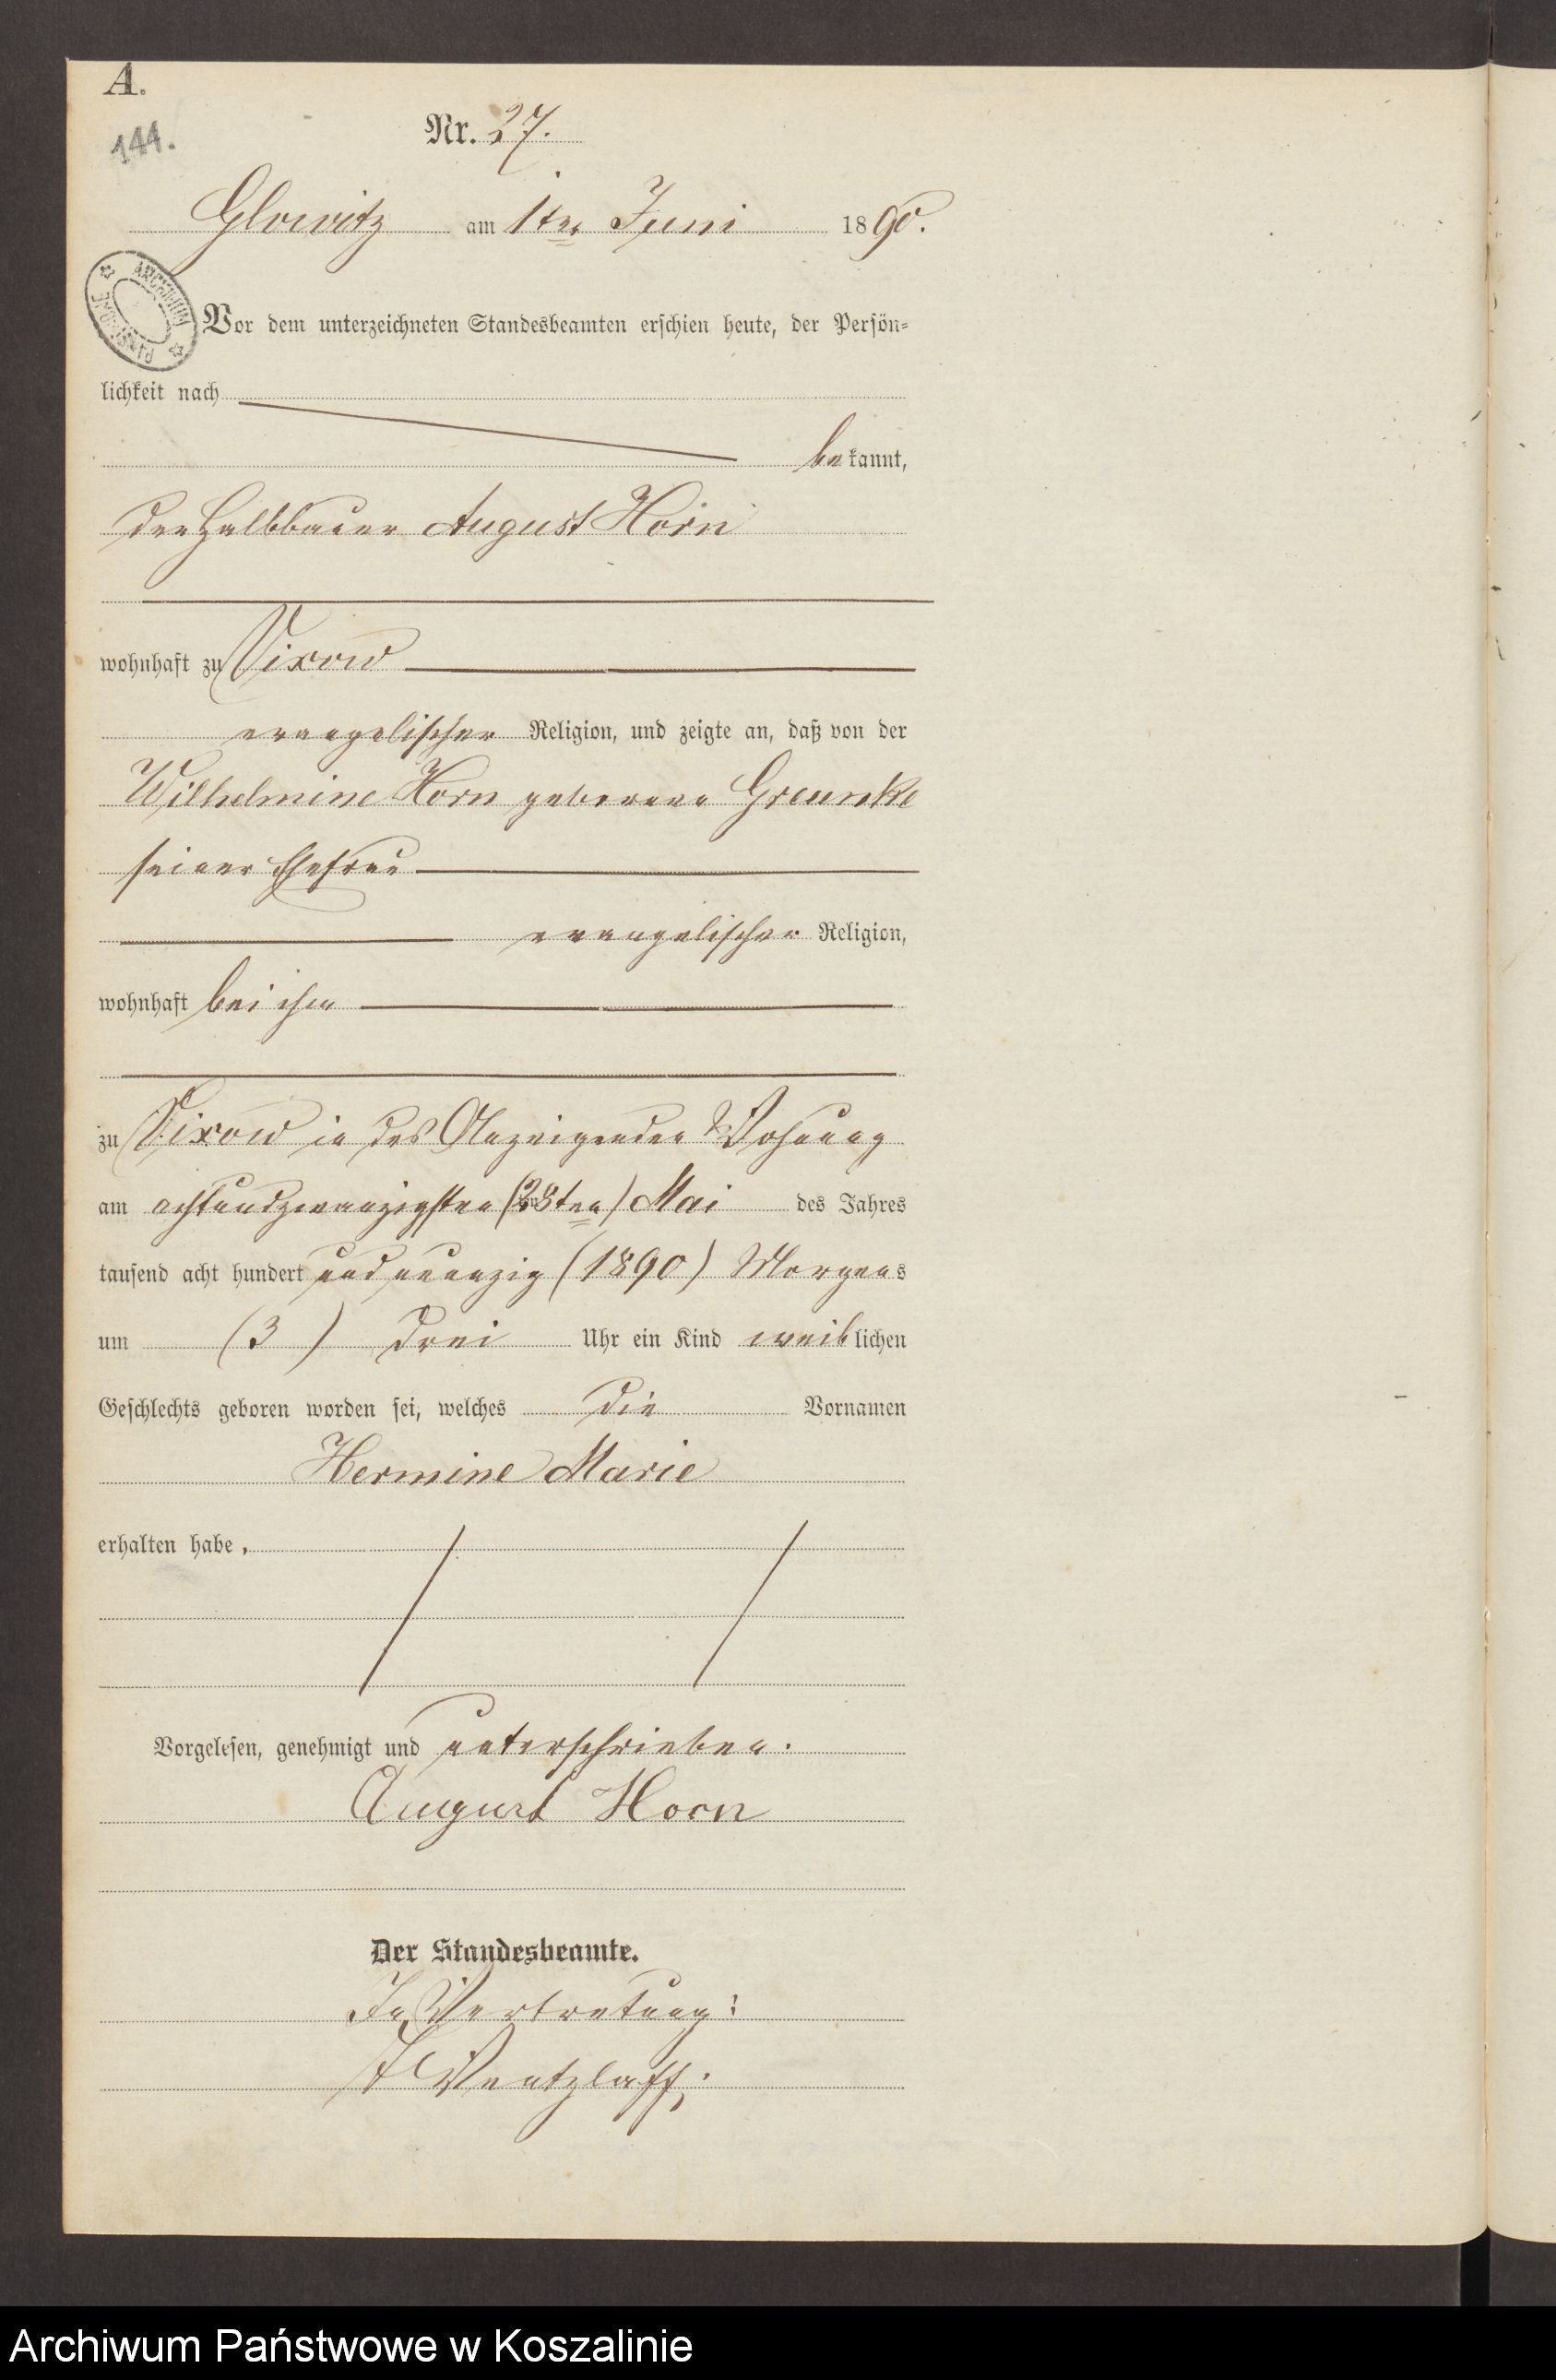 A.
144.
Nr. 27.
Glowitz am 1ten Juni 1890.
ARCHIWUM PAŃSTWOWE
Vor dem unterzeichneten Standesbeamten erschien heute, der Persön=
lichkeit nach
bekannt,
der Halbbauer August Horn
wohnhaft zu Vixow
evangelischer Religion, und zeigte an, daß von der
Wilhelmine Horn geborene Greunke
seiner Ehefrau
evangelischer Religion,
wohnhaft bei ihm
zu Vixow in des Anzeigenden Wohnung
am achtundzwanzigsten (28ten) Mai des Jahres
tausend acht hundert und neunzig (1890) Morgens
um (3) drei Uhr ein Kind weiblichen
Geschlechts geboren worden sei, welches die Vornamen
Hermine Marie
erhalten habe.
Vorgelesen, genehmigt und unterschrieben.
August Horn
Der Standesbeamte.
In Vertretung:
Wentzlaff.
Archiwum Państwowe w Koszalinie